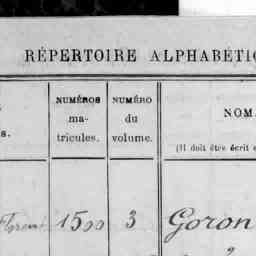 RÉPERTOIRE ALPHABÉTI
NUMÉROS
ma-
tricules.
NUMÉRO
du
volume.
NOM
s.
(Il doit être écrit
1500
3
Goron